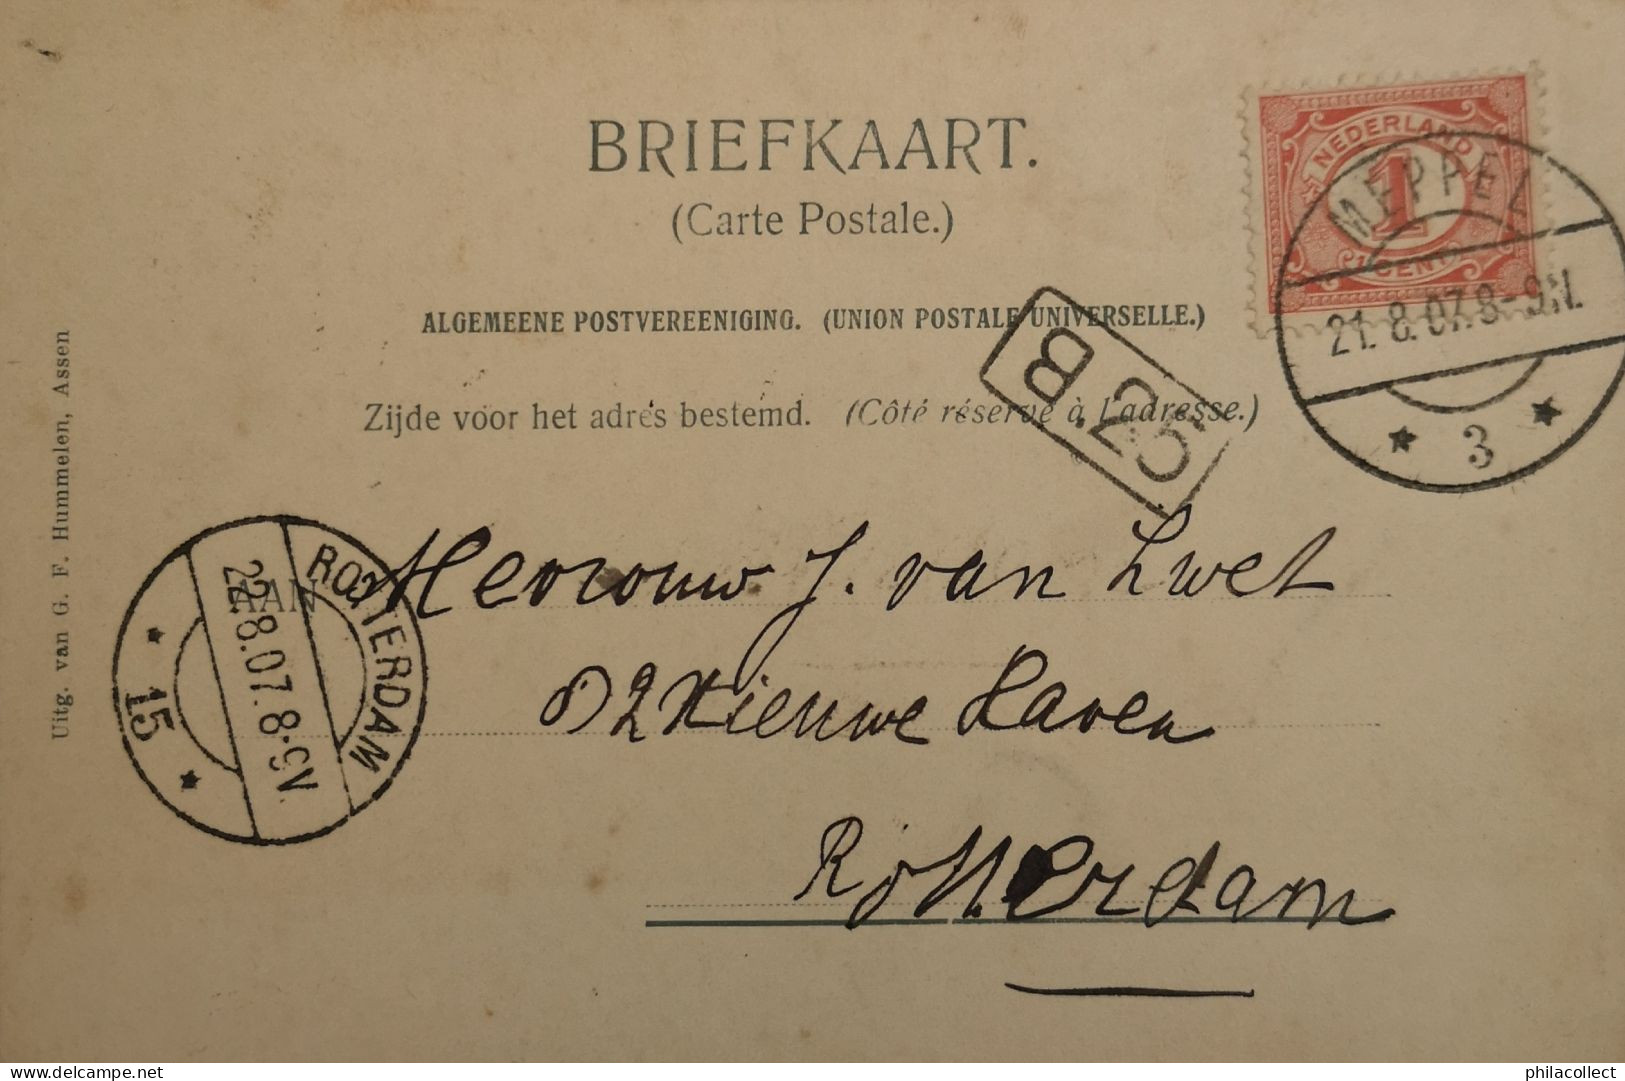 BRIEFKAART.
(Carte Postale.)
NEDERLAND
1
1 CENT
MEPPEL
21.8.07.8-9N.
3
ALGEMEENE POSTVEREENIGING. (UNION POSTALE UNIVERSELLE.)
B
Zijde voor het adres bestemd. (Côté réservé à l'adresse.)
Uitg. van G. F. Hummelen, Assen
ROTTERDAM
22.8.07.8-9V.
15
AAN
Mevrouw J. van Zwet
82 Nieuwe Haven
Rotterdam
delcampe.net
philacollect